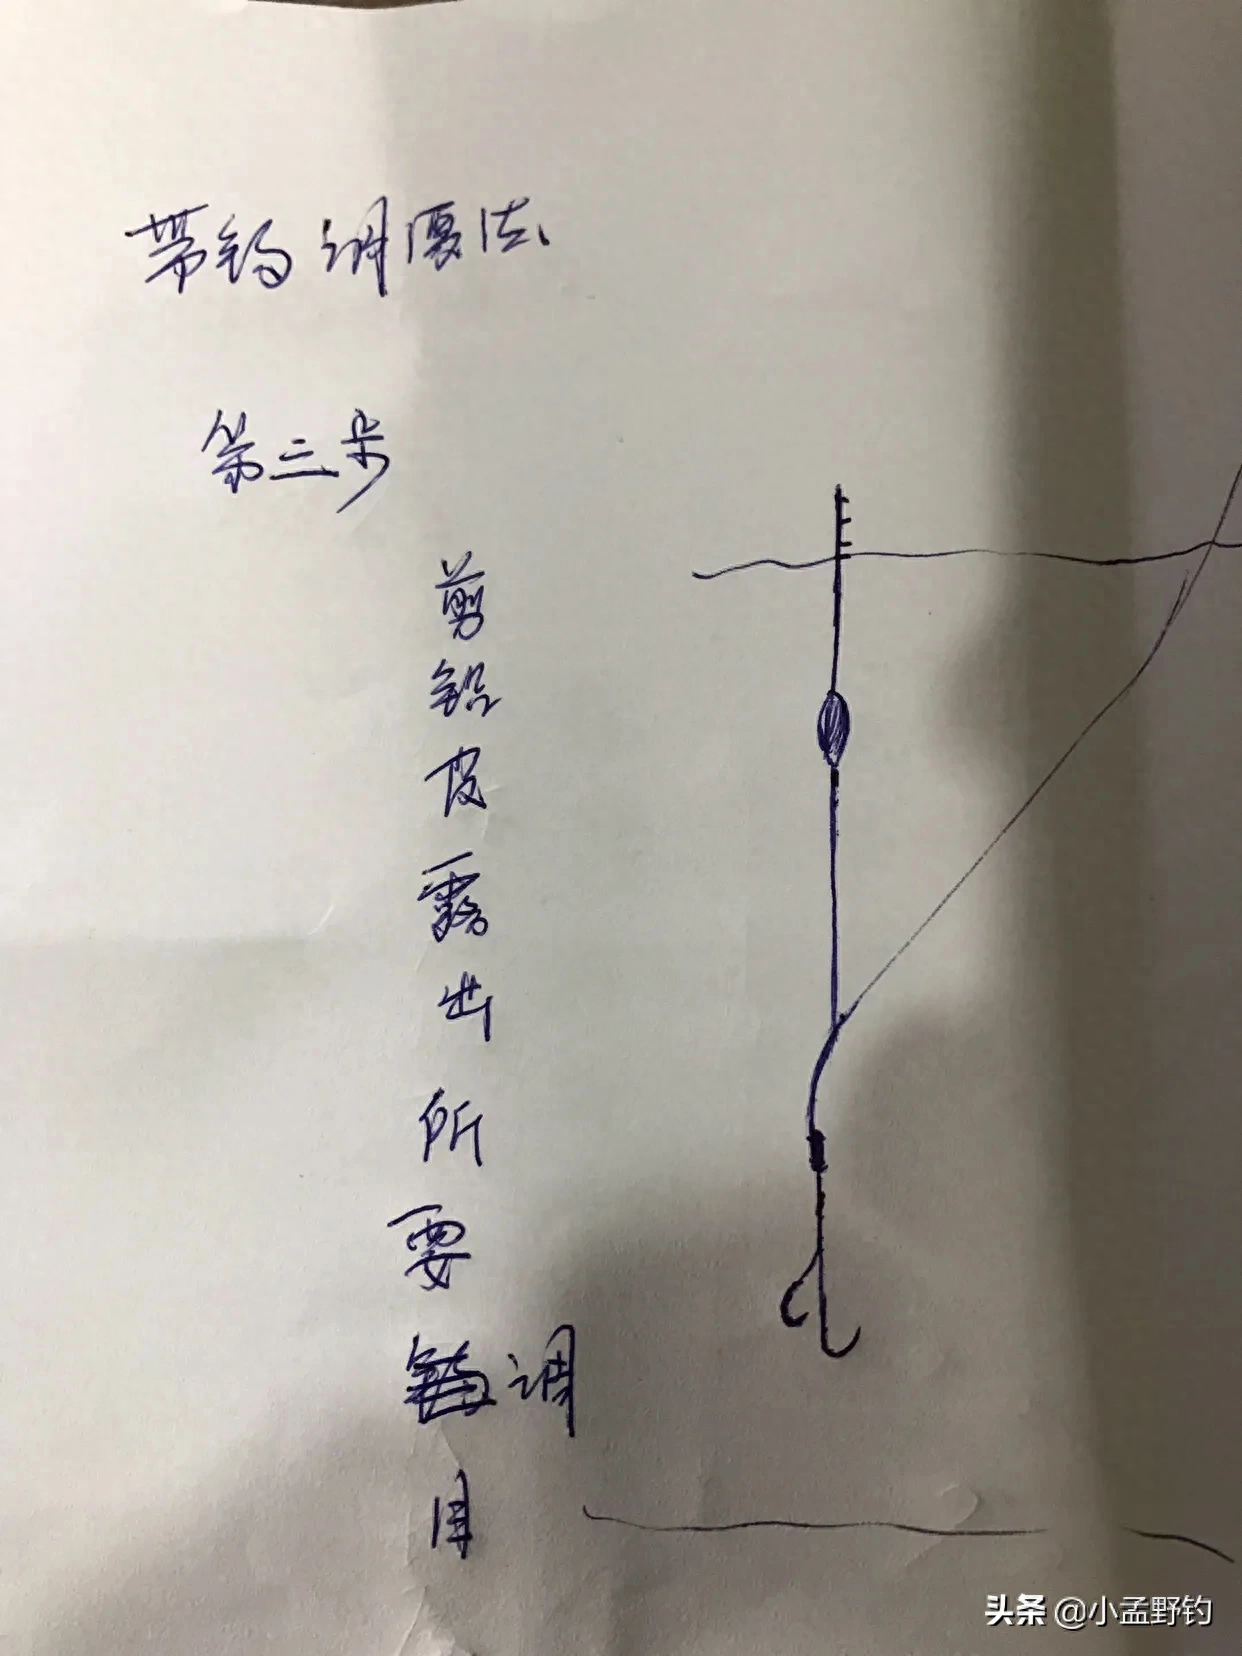 带钩调漂法
第三步
剪
铅
皮
露
出
所
要
调
目
头条 @小孟野钓